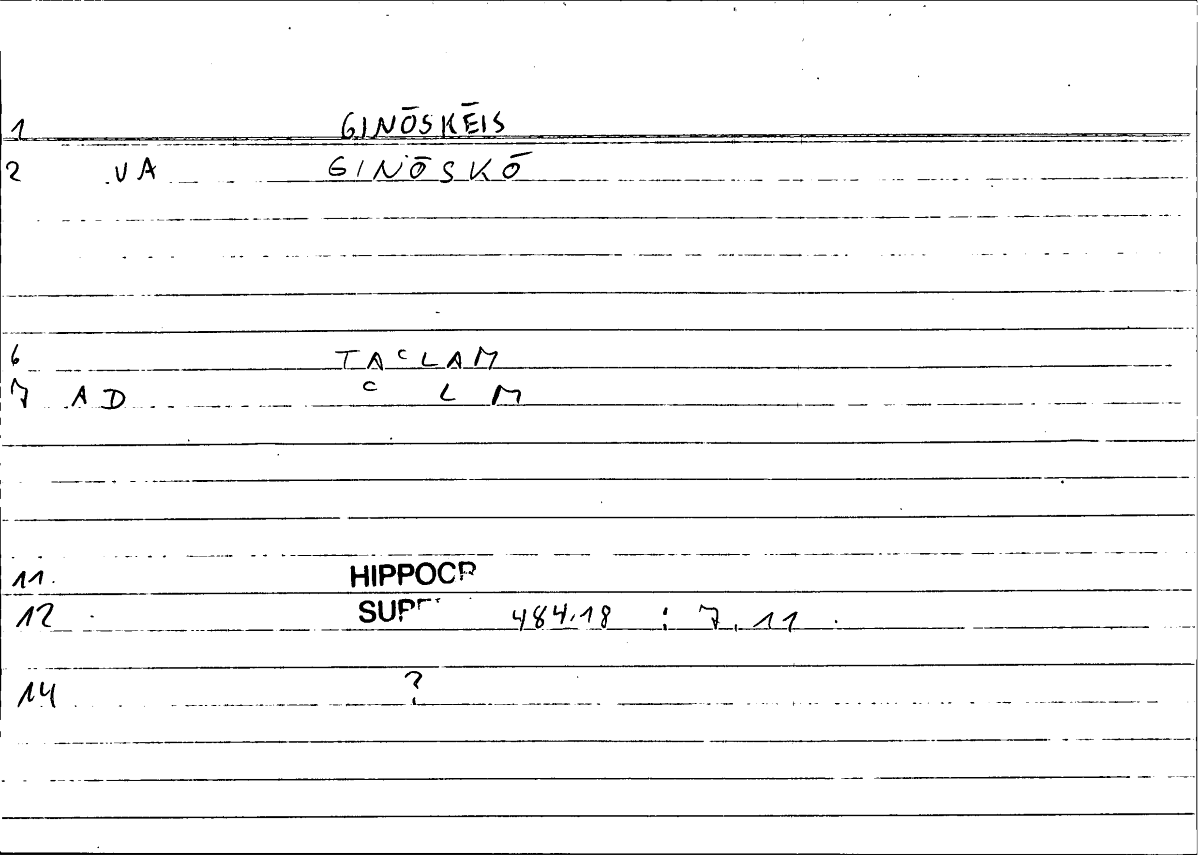 1 GINŌSKĒIS
2 VA GINŌSKŌ
6 TAᶜLAM
7 AD ᶜ L M
11. HIPPOCR
12 SUP 484.18 : 7.11
14 ?